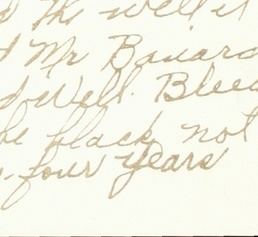 the well it
Mr Banard
Well. Bleed
be black not
four years